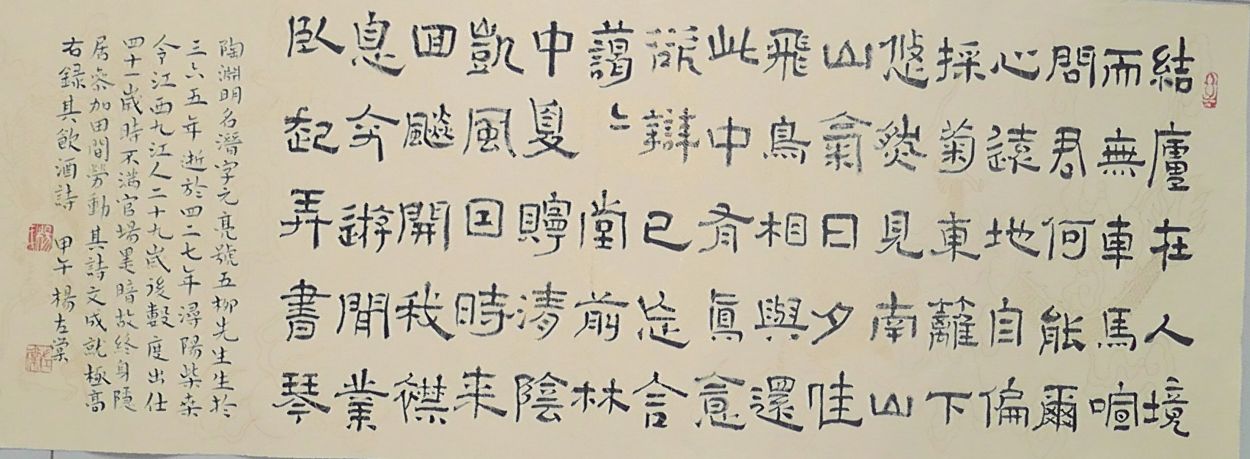 結廬在人境
而無車馬喧
問君何能爾
心遠地自偏
採菊東籬下
悠然見南山
山氣日夕佳
飛鳥相與還
此中有眞意
欲辯已忘言
藹〻堂前林
中夏貯清陰
凱風因時来
回飈開我襟
息交遊閒業
臥起弄書琴
陶淵明名潛字元亮號五柳先生生於
三六五年逝於四二七年潯陽柴桑
今江西九江人二十九歲後數度出仕
四十一歲時不滿官場黑暗故終身隱
居參加田間勞動其詩文成就極高
右錄其飲酒詩 甲午楊左棠